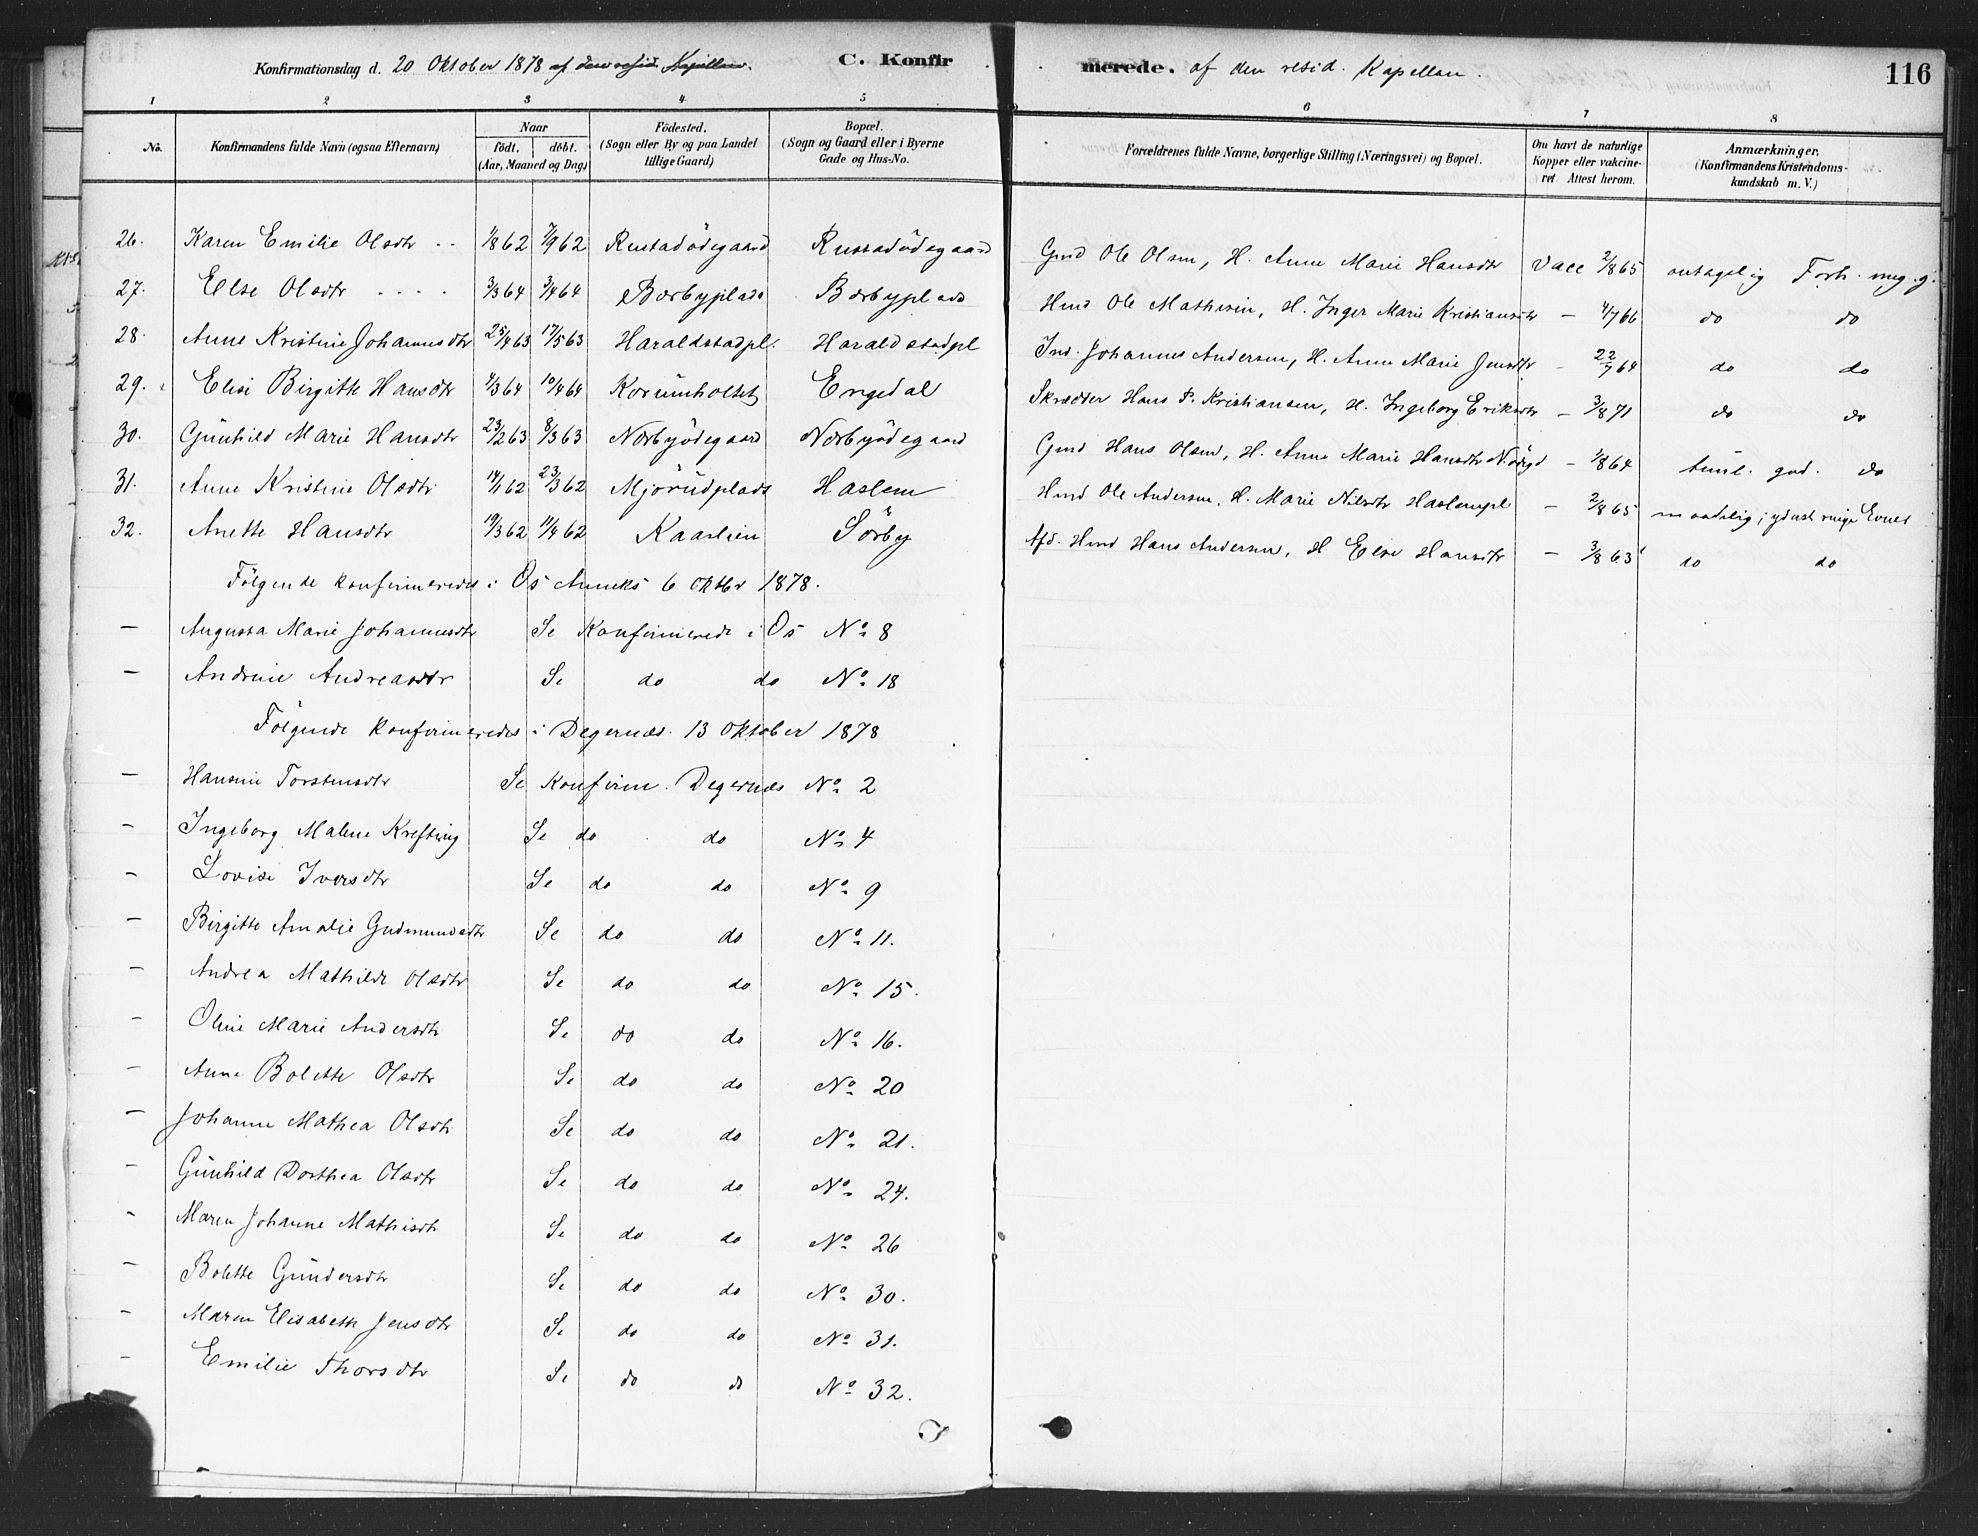 Konfirmationsdag d. 20 Oktober 1878 af den resid. Kapellan. C. Konfir merede. af den resid. Kapellan. 116
1 2 3 4 5 6 7 8
No. Konfirmandens fulde Navn (ogsaa Efternavn) Naar födt. döbt. (Aar, Maaned og Dag) Födested. (Sogn eller By og paa Landet tillige Gaard) Bopæl. (Sogn og Gaard eller i Byerne Gade og Hus-No. Forældrenes fulde Navne, borgerlige Stilling (Næringsvei) og Bopæl. Om havt de naturlige Kopper eller vakcineret Attest herom. Anmærkninger. (Konfirmandens Kristendomskundskab m. V.)
26. Karen Emilie Olsdtr 1/8 62 7/9 62 Rustadödegaard Rustadödegaard Gmd Ole Olsen, H. Anne Marie Hansdtr Vacc 2/8 65 antagelig Forh. meg. g.
27. Else Olsdtr 3/3 64 3/4 64 Bærbyplads Bærbyplads Hmd Ole Mathisen, H. Inger Marie Kristiansdtr — 4/7 66 do do
28. Anne Kristine Johannesdtr 25/4 63 17/5 63 Haraldstadpl. Haraldstadpl Ind. Johannes Andersen, H. Anne Marie Jensdtr - 22/7 64 do do
29. Elise Birgitte Hansdtr 4/3 64 10/4 64 Korumholtet Engedal Skrædder Hans P. Kristiansen, H. Ingeborg Eriksdtr — 3/8 71 do do
30. Gunhild Marie Hansdtr 23/2 63 8/3 63 Nærbyödegaard Nærbyödegaard Gmd Hans Olsen, H. Anne Marie Hansdtr Nödgd — 1/8 64 teml. god. do
31. Anne Kristine Olsdtr 14/1 62 23/3 62 Mjörudplads Haslem Hmd Ole Andersen, H. Marie Nilsdtr Haslempl — 2/8 65 maadelig; yderst ringe Evner
32. Anette Hansdtr 19/3 62 11/4 62 Kaaslien Sörby Afd. Hmd Hans Andersen, H Else Hansdtr — 3/8 63 do do
Fölgende konfirmeredes i Os Anneks 6 Oktbr 1878.
— Augusta Marie Johannesdtr Se Konfirmerede i Os No 8
— Andrine Andreasdtr Se do do No 18
Fölgende konfirmeredes i Degernæs 13 Oktober 1878
— Hansine Torstensdtr Se Konfirm. Degernæs No 2
- Ingeborg Malene Krefting Se do do No 4
- Lovise Iversdtr Se do do No 9
- Birgitte Amalie Gudmundsdtr Se do do No 11.
- Andrea Mathilde Olsdtr Se do do No 15.
- Oline Marie Andersdtr Se do do No 16.
- Anne Bolette Olsdtr Se do do No 20
— Johanne Mathea Olsdtr Se do do No 21.
- Gunhild Dorthea Olsdtr Se do do No 24.
- Maren Johanne Mathisdtr Se do do No 26
- Bolette Gundersdtr Se do do No 30.
- Maren Elisabeth Jensdtr Se do do No 31.
- Emilie Thorsdtr Se do do No 32.